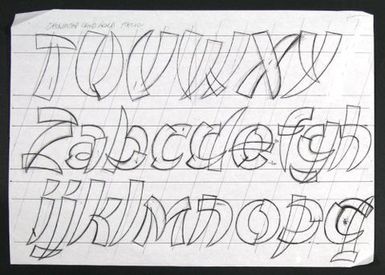 TUVWXY
Zabcdefgh
ijklmnopq